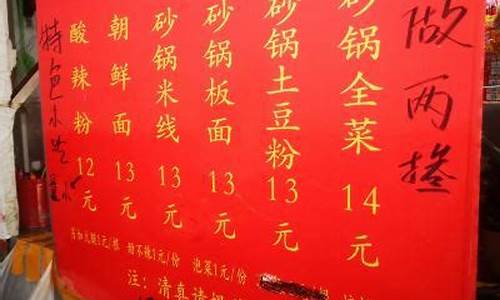 特色小吃
酸辣粉12元
朝鲜面13元
砂锅米线13元
砂锅板面13元
砂锅土豆粉13元
砂锅全菜14元
做两掺
另加火腿1元/根 辣不辣1元/份 泡菜1元/份
注：清真请